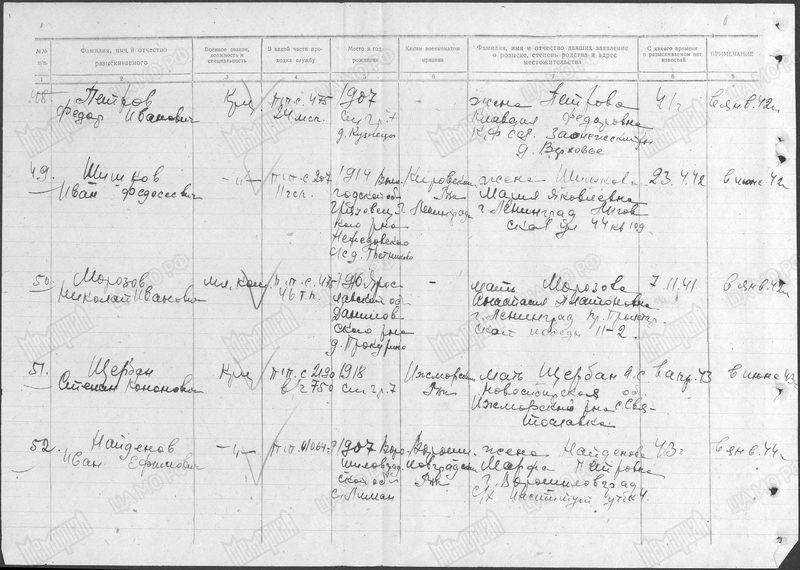 №№ п/п.
Фамилия, имя и отчество разыскиваемого
Военное звание, должность и специальность
В какой части проходил службу
Место и год рождения
Каким военкоматом призван
Фамилия, имя и отчество давших заявление о розыске, степень родства и адрес местожительства
С какого времени о разыскиваемом нет известий
ПРИМЕЧАНИЕ
1 2 3 4 5 6 7 8 9
48. Петров
Федор Иванович
Крц
п.п.с. 475
24 мсп.
1907
см. гр. 7
д. Кузнецы
жена Петрова
Клавдия Федоровна
К.Ф ССР. Заонежский р-н
д. Верховье
41 г
в янв. 42 г
49. Шишков
Иван Федосеевич
-"-
п.п.с 207
11 сп.
1914 Воло-
годской об
Грязовец-
кого р-на
Нефедовского
с/с д.
Кировским
Рвк
г. Ленинград
жена Шишкова
Мария Яковлевна
г. Ленинград Лигов
ская ул 44 кв 109
23.4.42
в июне 42 г
50. Морозов
Николай Иванович
мл. ком.
п.п.с. 475
46 т.п.
Ярос-
лавской об
Данилов
ского р-на
д. Прокунино
-
мать Морозова
Анастасия
г. Ленинград пр. Пролетар.
ской победы 11-2.
7.11.41
в янв. 42 г
51. Щербан
Степан Кононович
Крц
п.п.с 2190
в/ч 750
1918
см. гр. 7
Ижморским
Рвк
мать Щербан А.С
Новосибирская об.
Ижморский р-н с. Свя-
тославка
в апр. 43
в июне 43 г
52. Найденов
Иван Ефимович
-"-
п.п. 01064-
1907 Воро-
шиловград
ской об
с. Лиман
Вороши-
ловградским
Рвк
жена Найденова
Марфа Петровна
г. Ворошиловград
С/Х Институт уч-к 4.
43 г
в янв. 44 г
Мемориал
ЦАМО РФ